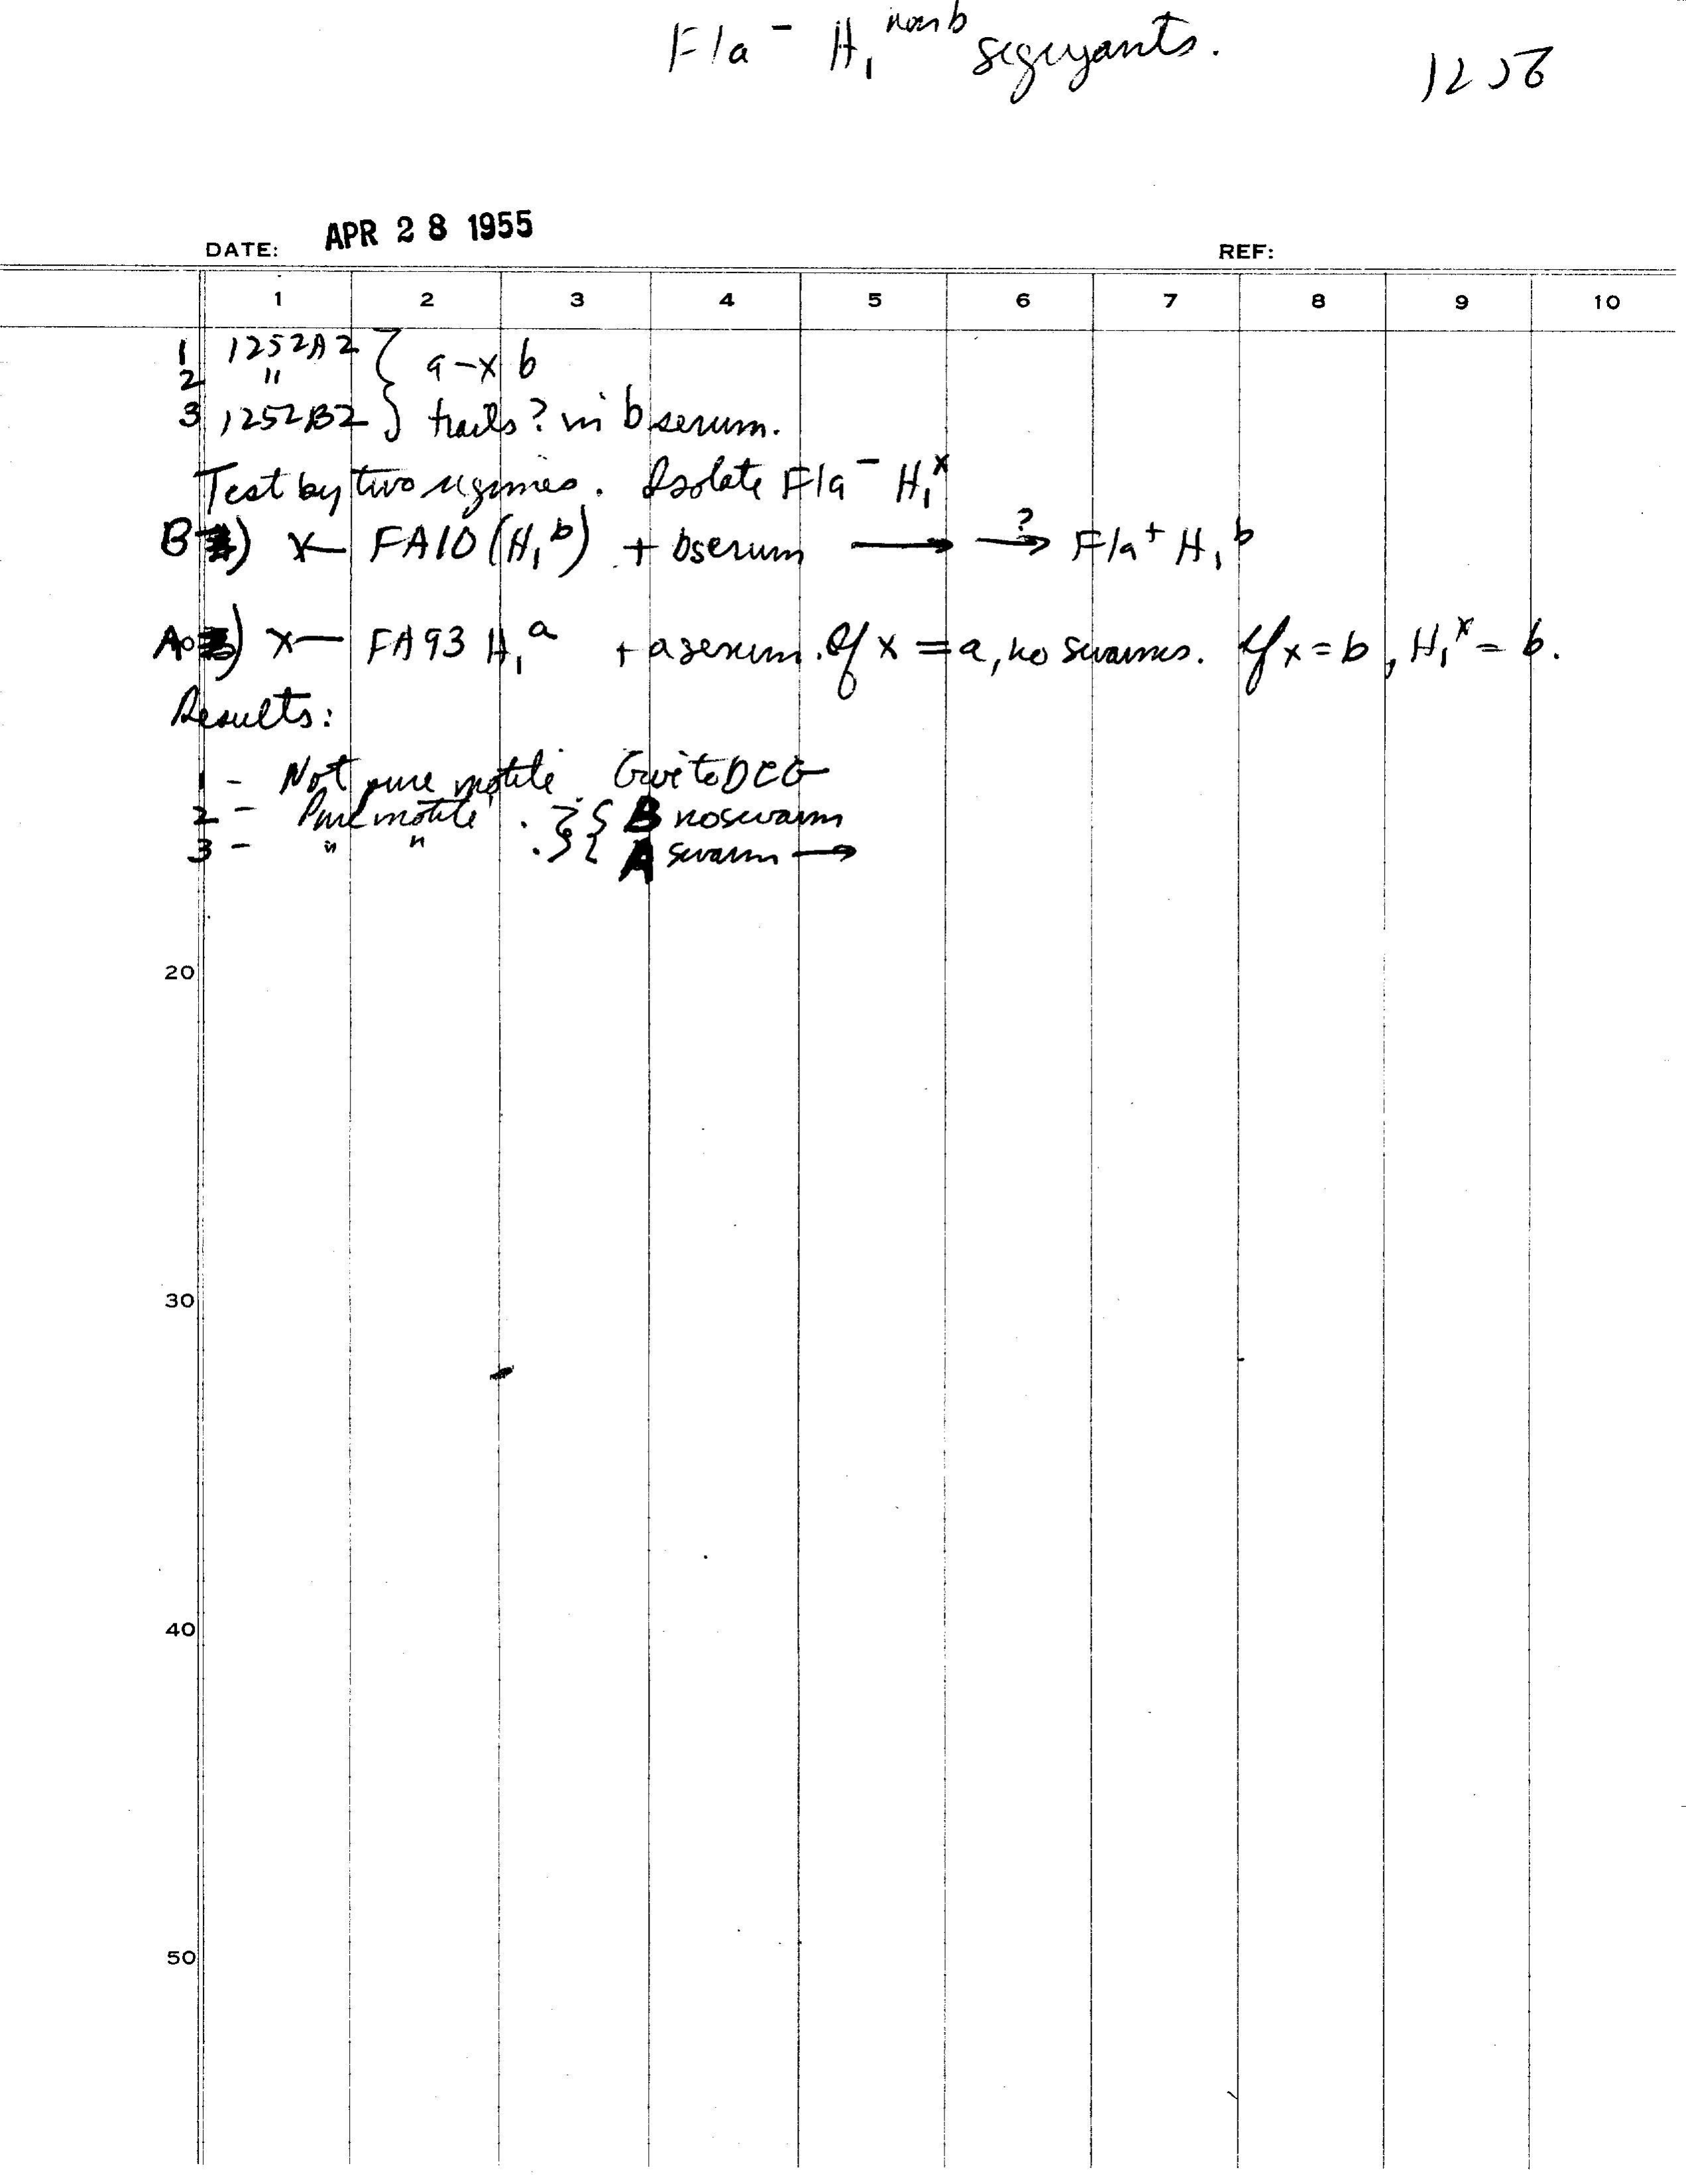 Fla⁻ H₁ⁿᵒⁿ ᵇ segregants.
1256
DATE: APR 28 1955 REF:
1 2 3 4 5 6 7 8 9 10
1 1252A2 { a—x b
2 "
3 1252B2 } trails? in b serum.
Test by two regimes. Isolate Fla⁻ H₁ˣ
B) x— FA10 (H₁ᵇ) + b serum → →? Fla⁺ H₁ᵇ
A) x— FA93 H₁ᵃ + a serum. If x = a, no swarms. If x = b, H₁ˣ = b.
Results:
1 - Not pure motile. Give to DCG
2 - Pure motile . } { B no swarm
3 - " " . } { A swarm →
20
30
40
50